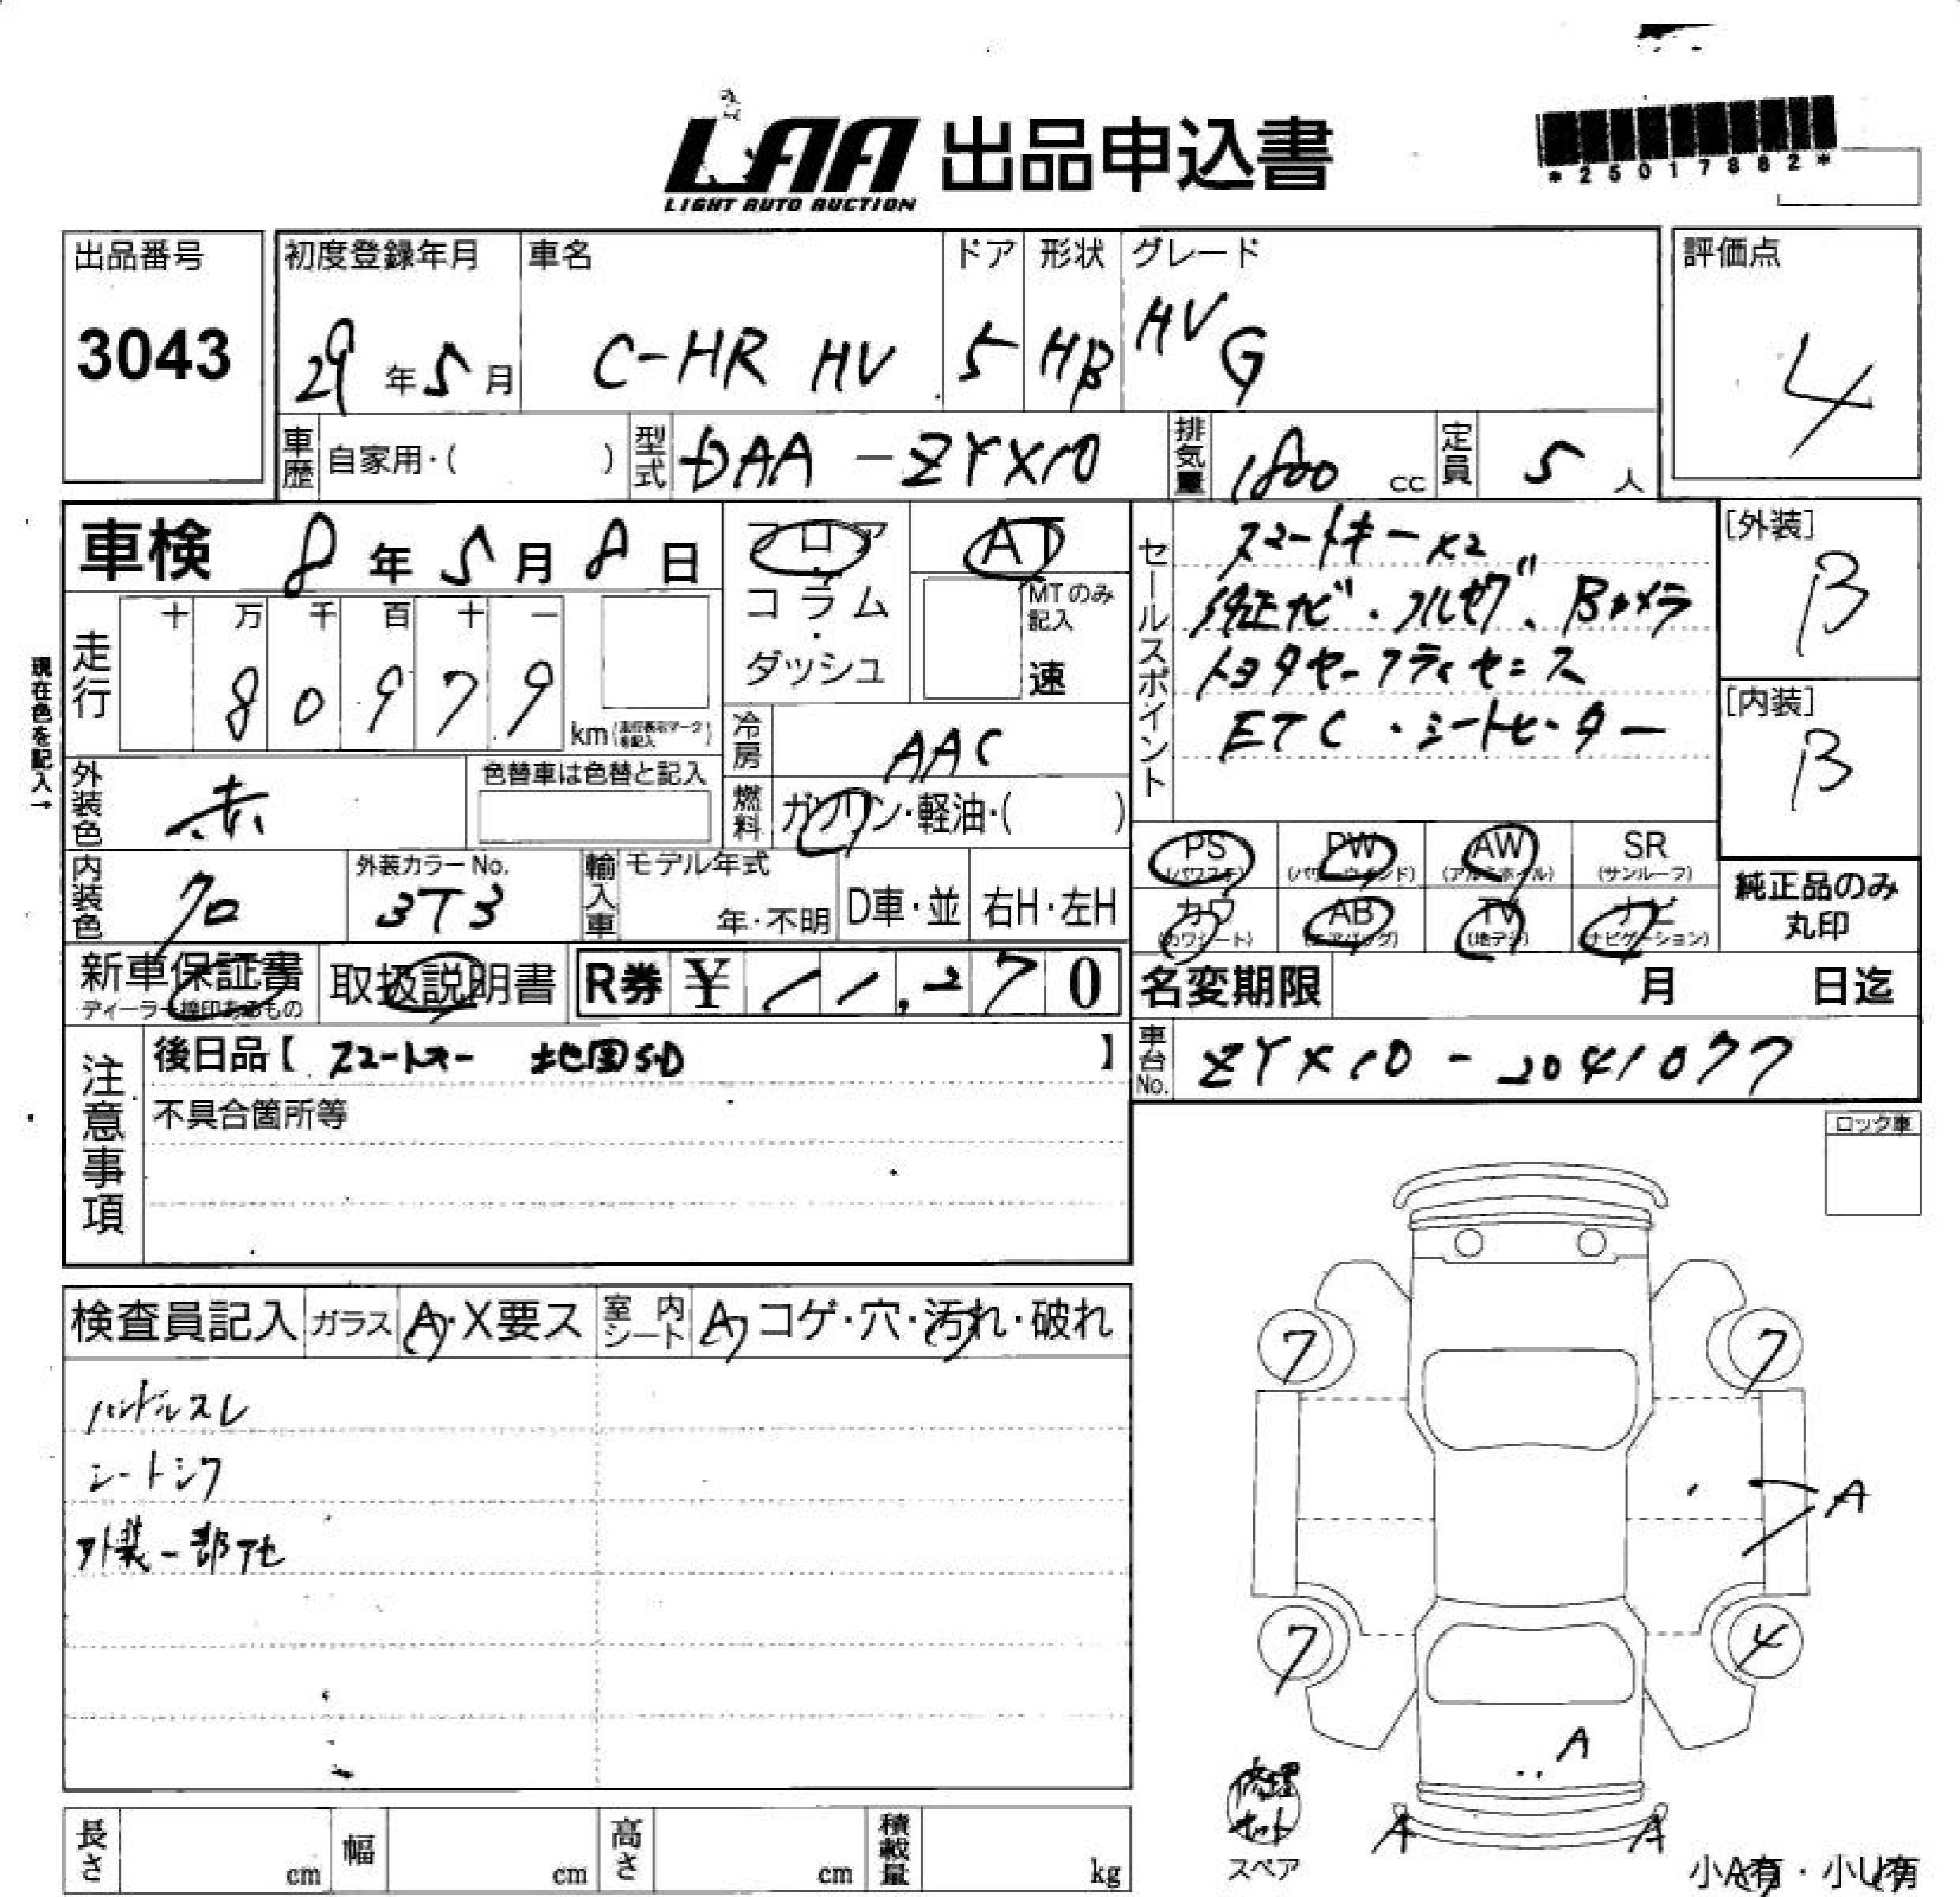 LAA 出品申込書
LIGHT AUTO AUCTION
*25017882*
出品番号
3043
初度登録年月
29年5月
車名
C-HR HV
ドア
5
形状
HB
グレード
HV G
評価点
4
車歴 自家用・( )
型式 DAA-ZYX10
排気量 1800 cc
定員 5 人
車検 8年5月8日
フロア
コラム
・
ダッシュ
AT
MTのみ記入
速
セールスポイント
スマートキー×2
純正ナビ・フルセグ、Bカメラ
トヨタセーフティセンス
ETC・シートヒーター
[外装]
B
[内装]
B
現在色を記入→
走行
十 万 千 百 十 一
8 0 9 7 9
km(走行表示マークを記入)
冷房 AAC
燃料 ガソリン・軽油・( )
外装色 赤
色替車は色替と記入
内装色 クロ
外装カラーNo.
3T3
輸入車 モデル年式
年・不明
D車・並
右H・左H
PS
(パワステ)
PW
(パワーウインド)
AW
(アルミホイル)
SR
(サンルーフ)
カワ
(カワシート)
AB
(エアバッグ)
TV
(地デジ)
ナビ
(ナビゲーション)
純正品のみ
丸印
新車保証書
ディーラー捺印あるもの
取扱説明書
R券 ¥ 11,270
名変期限 月 日迄
注意事項
後日品【 スマートキー 地図SD 】
不具合箇所等
車台No. ZYX10-2041077
ロック車
検査員記入
ガラス A・X要ス
室内シート A コゲ・穴・汚れ・破れ
ハンドルスレ
シートシワ
外装一部アセ
7
7
A
7
4
A
A
A
修理
キット
スペア
小A有・小U有
長さ cm
幅 cm
高さ cm
積載量 kg